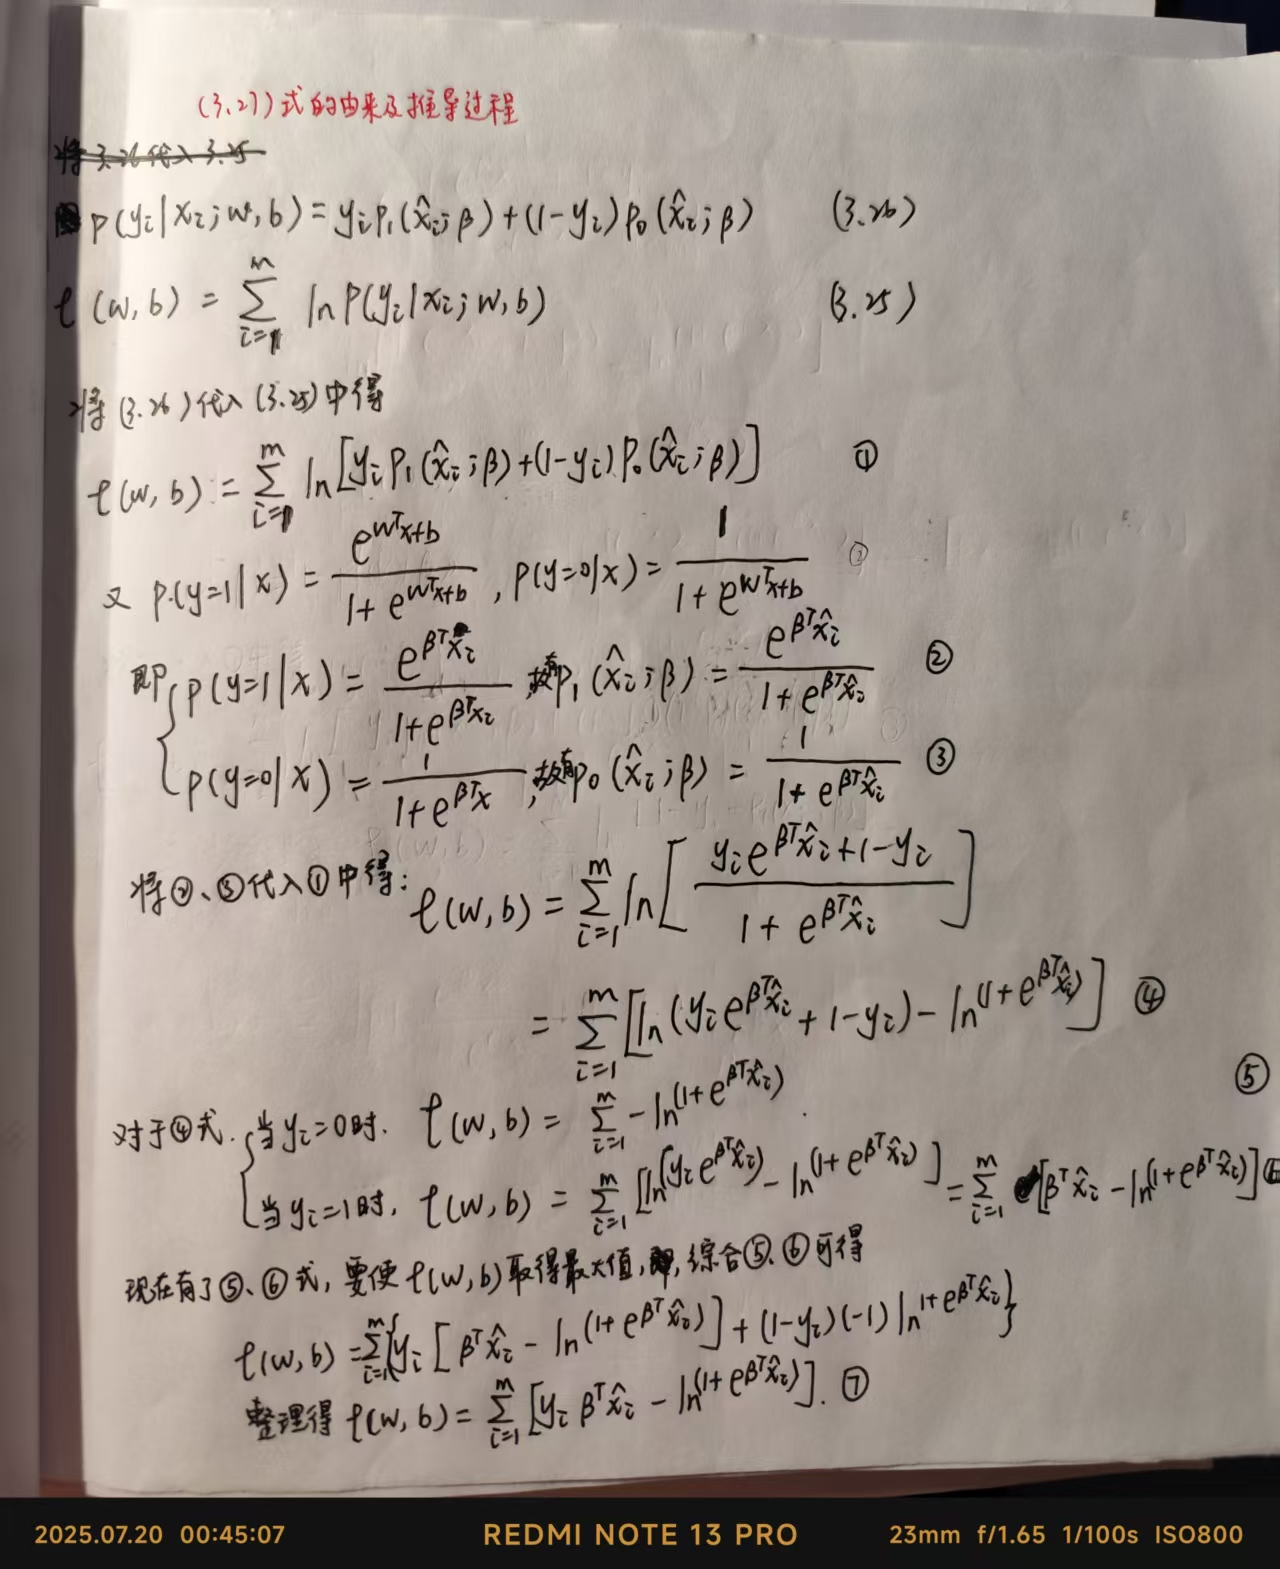 (3.27)式的由来及推导过程
将3.26代入3.25
p(yᵢ|xᵢ;w,b)=yᵢp₁(x̂ᵢ;β)+(1-yᵢ)p₀(x̂ᵢ;β) (3.26)
ℓ(w,b)=∑ᵢ₌₁ᵐ ln P(yᵢ|xᵢ;w,b) (3.25)
将(3.26)代入(3.25)中得
ℓ(w,b)=∑ᵢ₌₁ᵐ ln[yᵢp₁(x̂ᵢ;β)+(1-yᵢ)p₀(x̂ᵢ;β)] ①
又 p(y=1|x)=e^(wᵀx+b)/(1+e^(wᵀx+b)), p(y=0|x)=1/(1+e^(wᵀx+b))
即{p(y=1|x)=e^(βᵀx̂ᵢ)/(1+e^(βᵀxᵢ)),故有p₁(x̂ᵢ;β)=e^(βᵀx̂ᵢ)/(1+e^(βᵀx̂ᵢ)) ②
p(y=0|x)=1/(1+e^(βᵀx)),故有p₀(x̂ᵢ;β)=1/(1+e^(βᵀx̂ᵢ)) ③
将②、③代入①中得: ℓ(w,b)=∑ᵢ₌₁ᵐ ln[(yᵢe^(βᵀx̂ᵢ)+1-yᵢ)/(1+e^(βᵀx̂ᵢ))]
=∑ᵢ₌₁ᵐ[ln(yᵢe^(βᵀx̂ᵢ)+1-yᵢ)-ln(1+e^(βᵀx̂ᵢ))] ④
对于④式.{当yᵢ=0时. ℓ(w,b)=∑ᵢ₌₁ᵐ -ln(1+e^(βᵀx̂ᵢ)). ⑤
当yᵢ=1时, ℓ(w,b)=∑ᵢ₌₁ᵐ[ln(yᵢe^(βᵀx̂ᵢ))-ln(1+e^(βᵀx̂ᵢ))]=∑ᵢ₌₁ᵐ[βᵀx̂ᵢ-ln(1+e^(βᵀx̂ᵢ))] ⑥
现在有了⑤、⑥式,要使ℓ(w,b)取得最大值,即,综合⑤、⑥可得
ℓ(w,b)=∑ᵢ₌₁ᵐ{yᵢ[βᵀx̂ᵢ-ln(1+e^(βᵀx̂ᵢ))]+(1-yᵢ)(-1)ln^(1+e^(βᵀx̂ᵢ))}
整理得 ℓ(w,b)=∑ᵢ₌₁ᵐ[yᵢβᵀx̂ᵢ-ln(1+e^(βᵀx̂ᵢ))]. ⑦
2025.07.20 00:45:07 REDMI NOTE 13 PRO 23mm f/1.65 1/100s ISO800